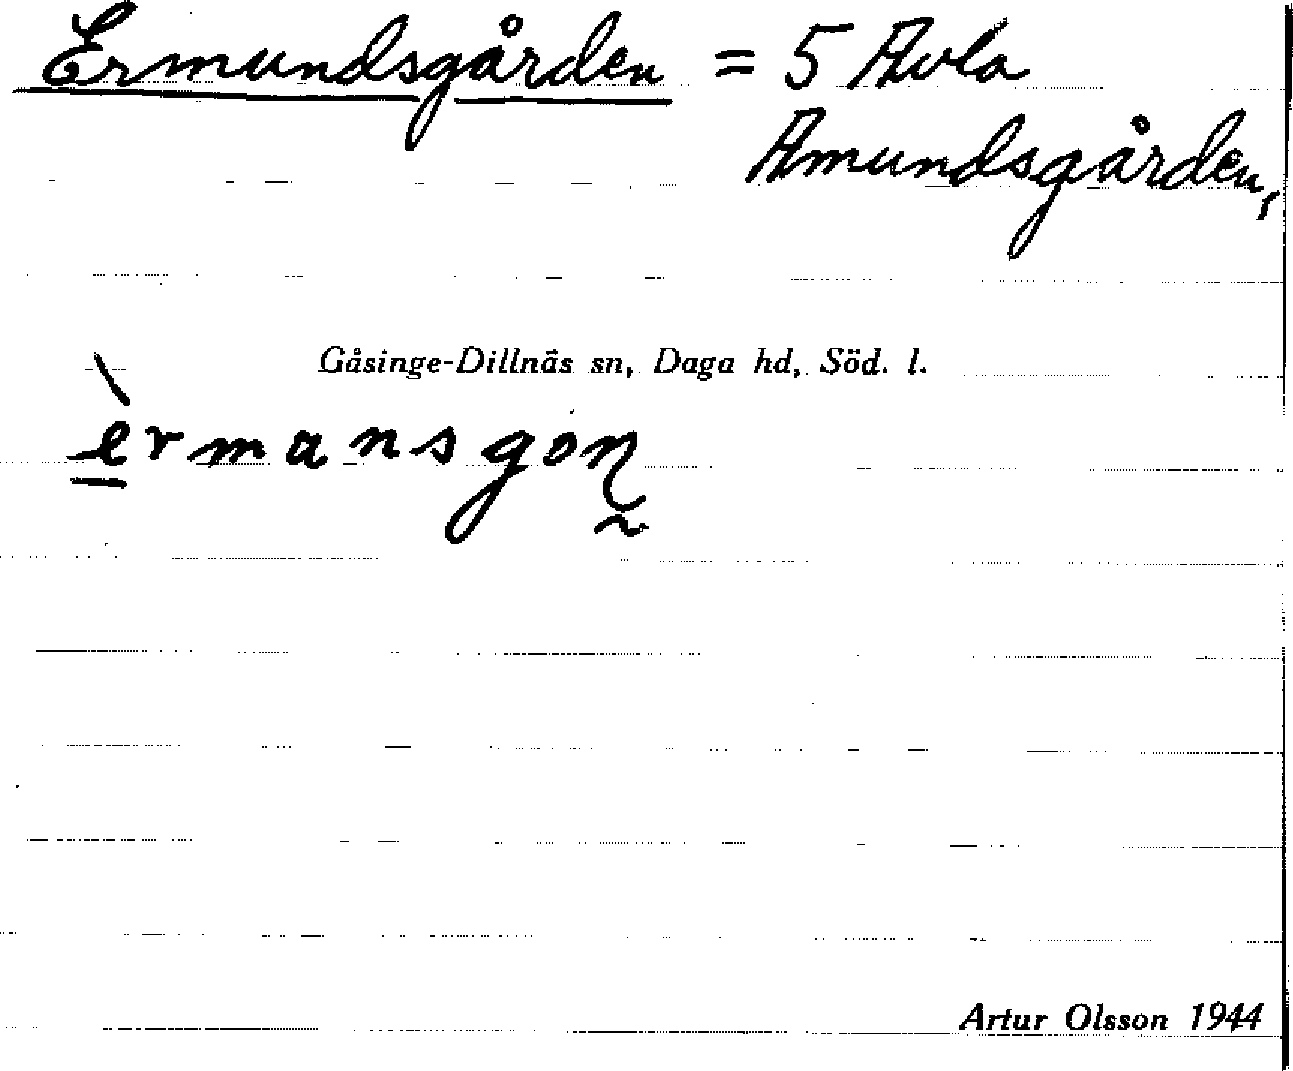 Ermundsgården = 5 Avla
Amundsgården,
Gåsinge-Dillnäs sn, Daga hd, Söd. l.
èrmansgoɳ
Artur Olsson 1944